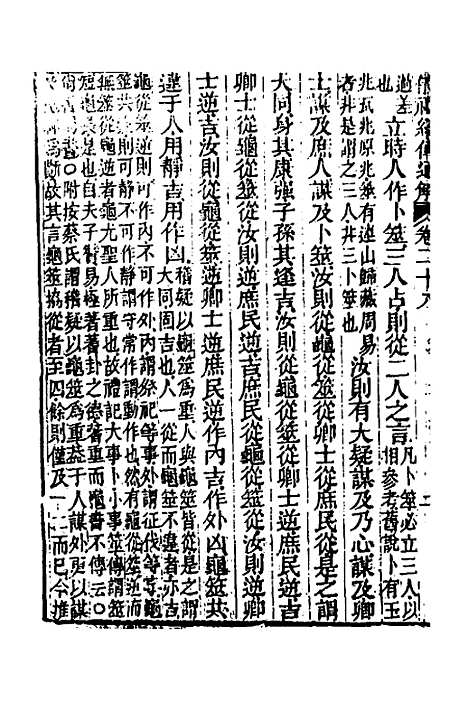 儀禮經傳通解 卷二十八
過差也 立時人作卜筮三人占則從二人之言 凡卜筮必立三人以
相參考舊說卜有玉
兆瓦兆原兆筮有連山歸藏周易
者非是謂之三人非三卜筮也 汝則有大疑謀及乃心謀及卿
士謀及庶人謀及卜筮汝則從龜從筮從卿士從庶民從是之謂
大同身其康彊子孫其逢吉汝則從龜從筮從卿士逆庶民逆吉
卿士從龜從筮從汝則逆庶民逆吉庶民從龜從筮從汝則逆卿
士逆吉汝則從龜從筮逆卿士逆庶民逆作內吉作外凶龜筮共
違于人用靜吉用作凶 稽疑以龜筮為重人與龜筮皆從是之謂
大同固吉也人一從而龜筮不違者亦吉
龜從筮逆則可作內不可作外內謂祭祀等事外謂征伐等事龜
筮共違則可靜不可作靜謂守常作謂動作也然有龜從筮逆而
無筮從龜逆者龜尤聖人所重也故禮記大事卜小事筮傳謂筮
短龜長是也自夫子贊易極著蓍卦之德蓍重而龜書不傳云○
附按蔡氏謂稽疑以龜筮為重益于人謀外更以謀
為斷故其言龜筮協從者至四餘則僅及一二而已今推